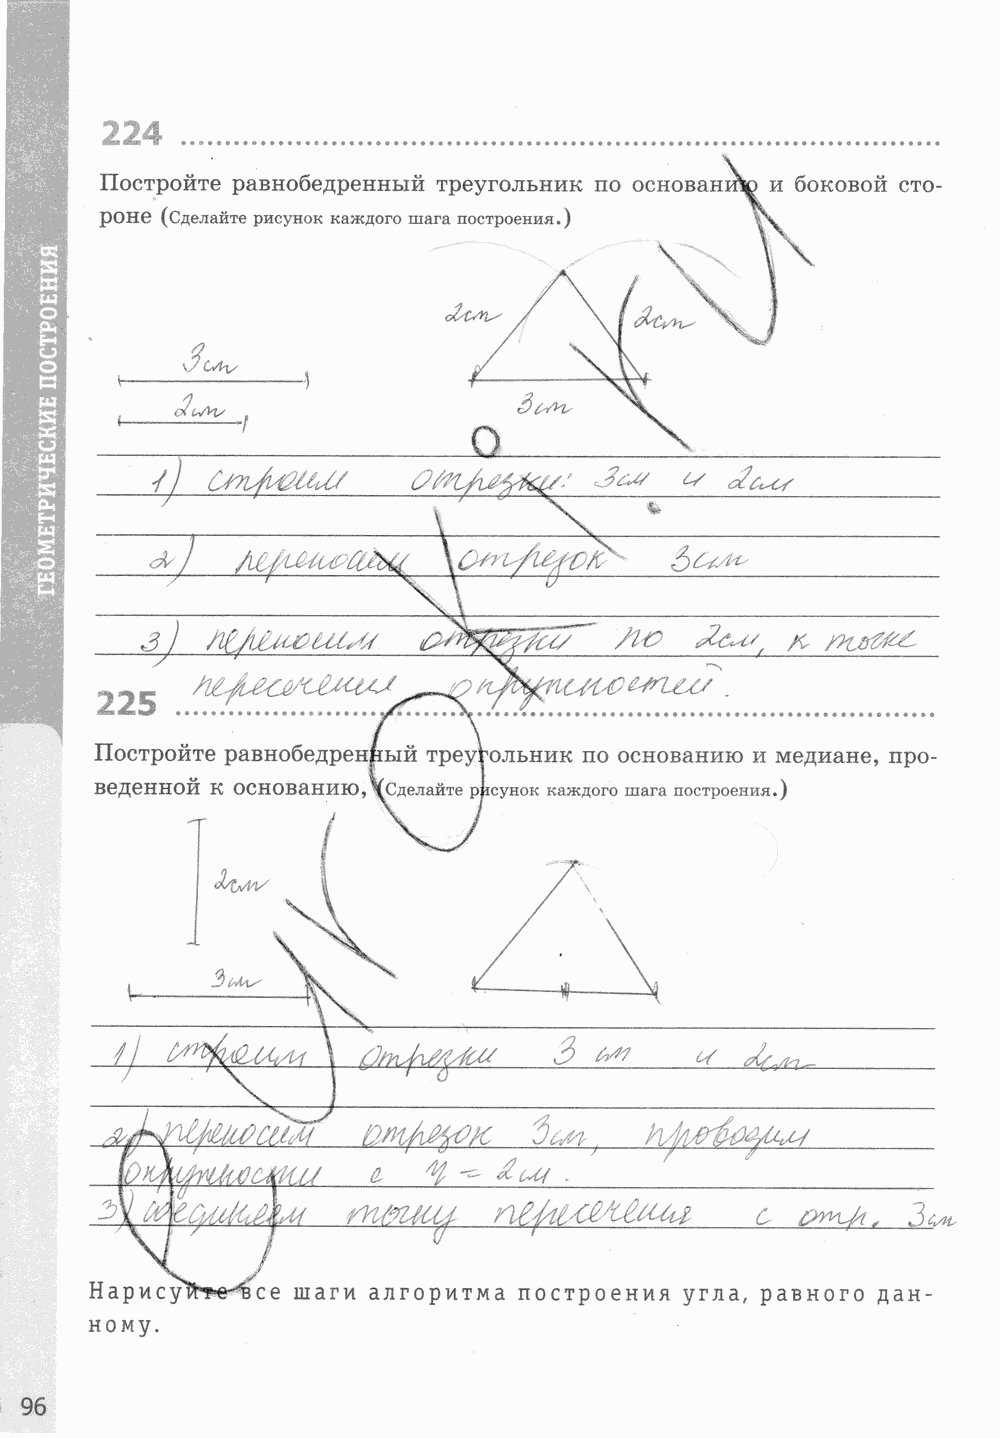 ГЕОМЕТРИЧЕСКИЕ ПОСТРОЕНИЯ
224
Постройте равнобедренный треугольник по основанию и боковой сто-
роне (Сделайте рисунок каждого шага построения.)
2см 2см
3см
2см 3см
1) строим отрезки: 3см и 2см
2) переносим отрезок 3см
3) переносим отрезки по 2см, к точке
пересечения окружностей.
225
Постройте равнобедренный треугольник по основанию и медиане, про-
веденной к основанию, (Сделайте рисунок каждого шага построения.)
2см
3см
1) строим отрезки 3 см и 2см
2) переносим отрезок 3см, проводим
окружности с r = 2см.
3) соединяем точку пересечения с отр. 3см
Нарисуйте все шаги алгоритма построения угла, равного дан-
ному.
96